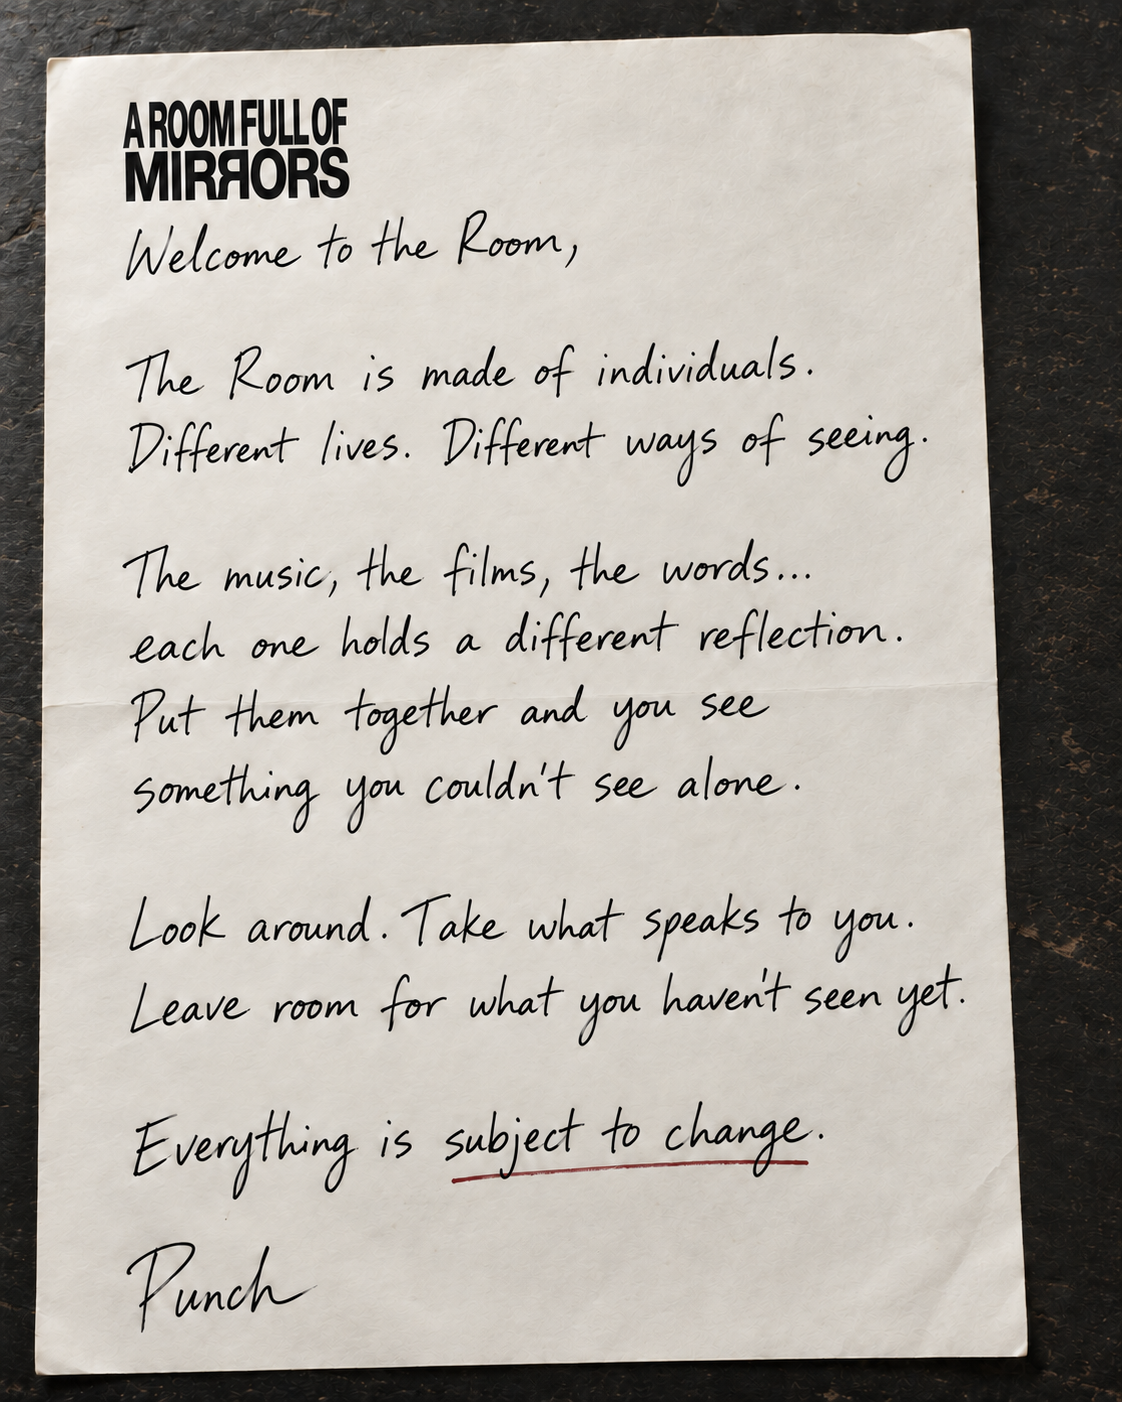 A ROOM FULL OF
MIRRORS
Welcome to the Room,
The Room is made of individuals.
Different lives. Different ways of seeing.
The music, the films, the words...
each one holds a different reflection.
Put them together and you see
something you couldn't see alone.
Look around. Take what speaks to you.
Leave room for what you haven't seen yet.
Everything is subject to change.
Punch